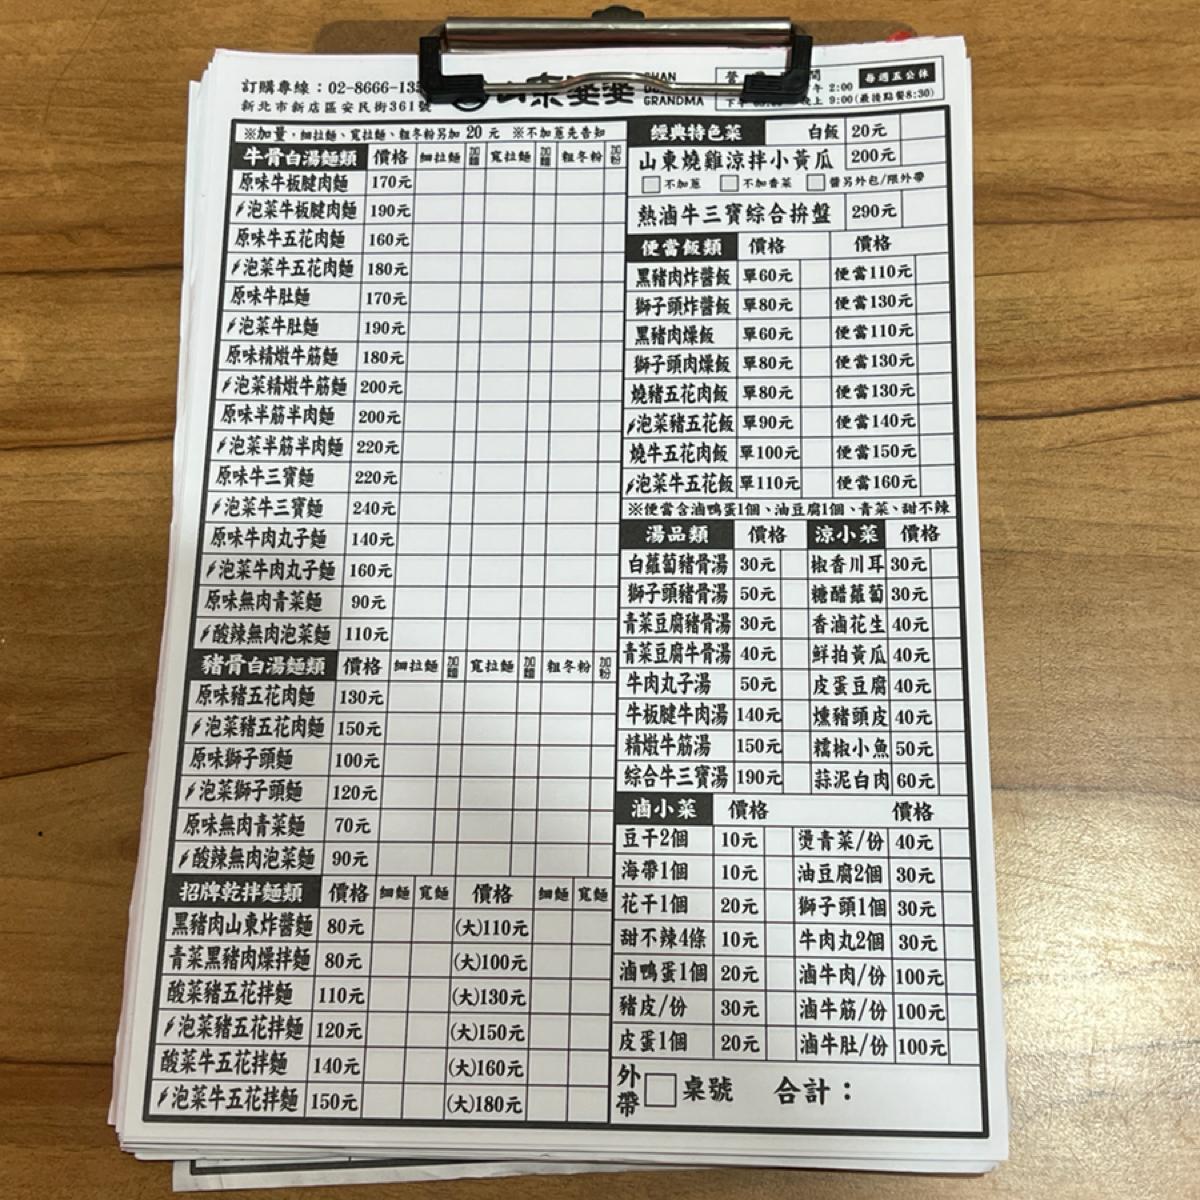 訂購專線：02-8666-13
新北市新店區安民街361號
山東婆婆
SHAN
GRANDMA
每週五公休
2:00
晚上 9:00(最後點餐8:30)
※加量，細拉麵、寬拉麵、粗冬粉另加 20 元 ※不加蔥先告知
牛骨白湯麵類 價格 細拉麵 加麵 寬拉麵 加麵 粗冬粉 加粉
原味牛板腱肉麵 170元
泡菜牛板腱肉麵 190元
原味牛五花肉麵 160元
泡菜牛五花肉麵 180元
原味牛肚麵 170元
泡菜牛肚麵 190元
原味精燉牛筋麵 180元
泡菜精燉牛筋麵 200元
原味半筋半肉麵 200元
泡菜半筋半肉麵 220元
原味牛三寶麵 220元
泡菜牛三寶麵 240元
原味牛肉丸子麵 140元
泡菜牛肉丸子麵 160元
原味無肉青菜麵 90元
酸辣無肉泡菜麵 110元
豬骨白湯麵類 價格 細拉麵 加麵 寬拉麵 加麵 粗冬粉 加粉
原味豬五花肉麵 130元
泡菜豬五花肉麵 150元
原味獅子頭麵 100元
泡菜獅子頭麵 120元
原味無肉青菜麵 70元
酸辣無肉泡菜麵 90元
招牌乾拌麵類 價格 細麵 寬麵 價格 細麵 寬麵
黑豬肉山東炸醬麵 80元 (大)110元
青菜黑豬肉燥拌麵 80元 (大)100元
酸菜豬五花拌麵 110元 (大)130元
泡菜豬五花拌麵 120元 (大)150元
酸菜牛五花拌麵 140元 (大)160元
泡菜牛五花拌麵 150元 (大)180元
經典特色菜 白飯 20元
山東燒雞涼拌小黃瓜 200元
不加蔥 不加香菜 醬另外包/限外帶
熱滷牛三寶綜合拚盤 290元
便當飯類 價格 價格
黑豬肉炸醬飯 單60元 便當110元
獅子頭炸醬飯 單80元 便當130元
黑豬肉燥飯 單60元 便當110元
獅子頭肉燥飯 單80元 便當130元
燒豬五花肉飯 單80元 便當130元
泡菜豬五花飯 單90元 便當140元
燒牛五花肉飯 單100元 便當150元
泡菜牛五花飯 單110元 便當160元
※便當含滷鴨蛋1個、油豆腐1個、青菜、甜不辣
湯品類 價格 涼小菜 價格
白蘿蔔豬骨湯 30元 椒香川耳 30元
獅子頭豬骨湯 50元 糖醋蘿蔔 30元
青菜豆腐豬骨湯 30元 香滷花生 40元
青菜豆腐牛骨湯 40元 鮮拍黃瓜 40元
牛肉丸子湯 50元 皮蛋豆腐 40元
牛板腱牛肉湯 140元 燻豬頭皮 40元
精燉牛筋湯 150元 糯椒小魚 50元
綜合牛三寶湯 190元 蒜泥白肉 60元
滷小菜 價格 價格
豆干2個 10元 燙青菜/份 40元
海帶1個 10元 油豆腐2個 30元
花干1個 20元 獅子頭1個 30元
甜不辣4條 10元 牛肉丸2個 30元
滷鴨蛋1個 20元 滷牛肉/份 100元
豬皮/份 30元 滷牛筋/份 100元
皮蛋1個 20元 滷牛肚/份 100元
外帶 桌號 合計：